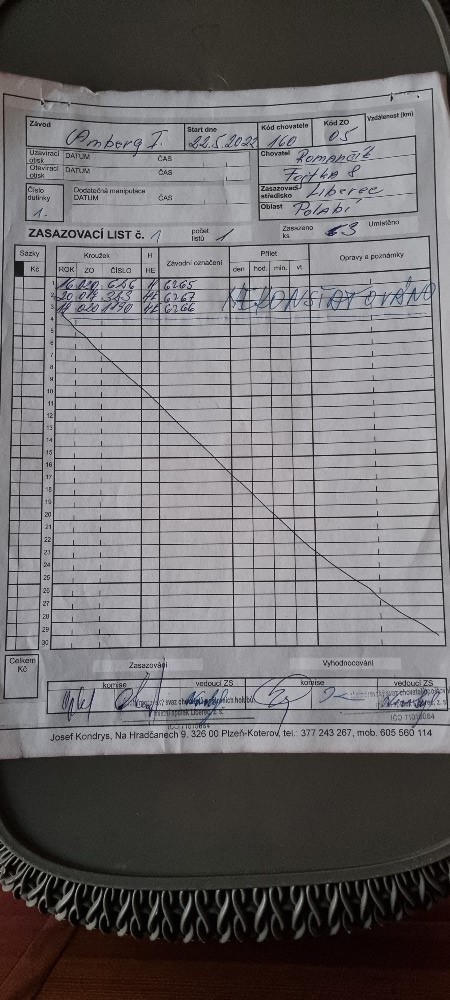 Závod Amberg I. Start dne 22.5.2022 Kód chovatele 160 Kód ZO 05 Vzdálenost (km)
Uzavírací otisk DATUM ČAS
Otevírací otisk DATUM ČAS
Chovatel Romančík
Fojtka 8
Číslo dutinky 1. Dodatečná manipulace
DATUM ČAS
Zasazovací středisko Liberec
Oblast Polabí
ZASAZOVACÍ LIST č. 1 počet listů 1 Zasazeno ks 3 Umístěno
Sázky Kroužek H Závodní označení Přílet Opravy a poznámky
Kč ROK ZO ČÍSLO HE den hod. min. vt.
1 16 020 656 H 6265
2 20 019 343 HE 6267 NEKONSTATOVÁNO
3 19 020 1190 HE 6266
4
5
6
7
8
9
10
11
12
13
14
15
16
17
18
19
20
21
22
23
24
25
26
27
28
29
30
Celkem Kč Zasazování Vyhodnocování
komise vedoucí ZS komise vedoucí ZS
Josef Kondrys, Na Hradčanech 9, 326 00 Plzeň-Koterov, tel.: 377 243 267, mob. 605 560 114